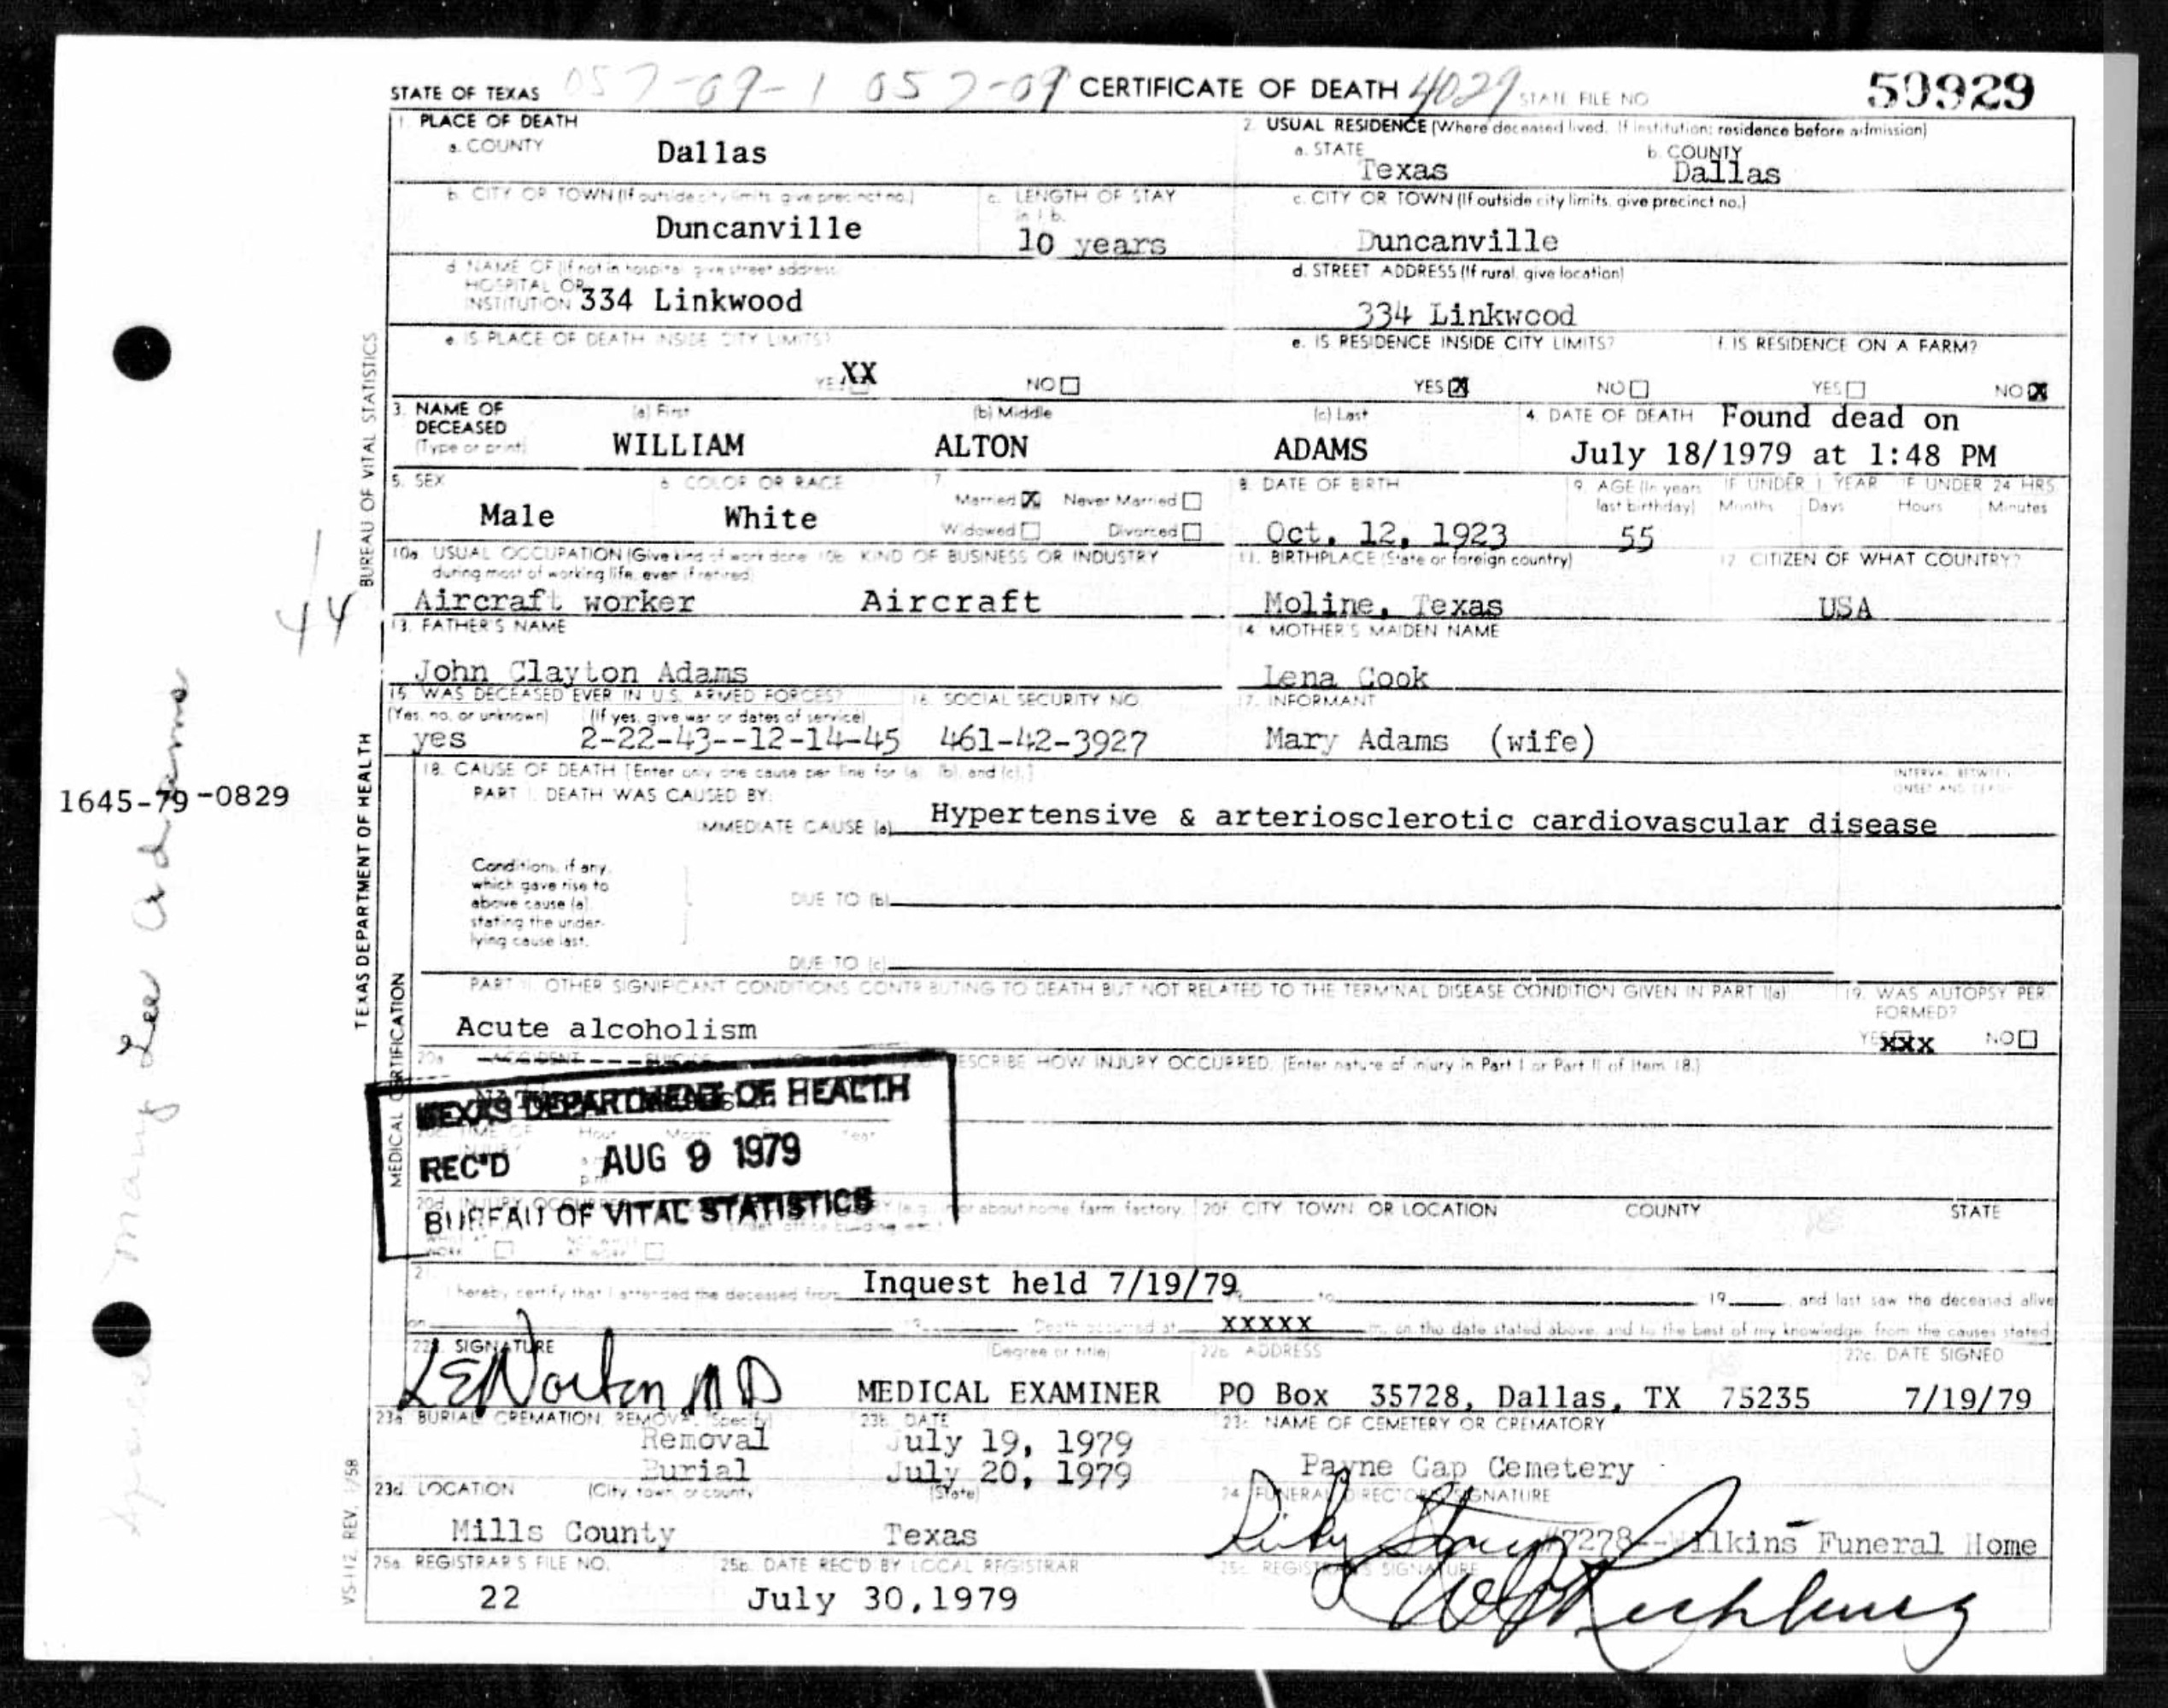 STATE OF TEXAS 057-09-1 057-09 CERTIFICATE OF DEATH 4029 STATE FILE NO. 50929
1. PLACE OF DEATH
a. COUNTY Dallas
2. USUAL RESIDENCE (Where deceased lived. If institution: residence before admission)
a. STATE Texas b. COUNTY Dallas
b. CITY OR TOWN (If outside city limits, give precinct no.) Duncanville
c. LENGTH OF STAY in 1b. 10 years
c. CITY OR TOWN (If outside city limits, give precinct no.) Duncanville
d. NAME OF (If not in hospital, give street address)
HOSPITAL OR
INSTITUTION 334 Linkwood
d. STREET ADDRESS (If rural, give location)
334 Linkwood
e. IS PLACE OF DEATH INSIDE CITY LIMITS?
YES XX NO
e. IS RESIDENCE INSIDE CITY LIMITS?
YES X NO
f. IS RESIDENCE ON A FARM?
YES NO X
3. NAME OF DECEASED (Type or print)
(a) First WILLIAM (b) Middle ALTON (c) Last ADAMS
4. DATE OF DEATH Found dead on
July 18/1979 at 1:48 PM
5. SEX Male
6. COLOR OR RACE White
7. Married X Never Married
Widowed Divorced
8. DATE OF BIRTH Oct. 12, 1923
9. AGE (In years last birthday) 55
IF UNDER 1 YEAR Months Days
IF UNDER 24 HRS. Hours Minutes
10a. USUAL OCCUPATION (Give kind of work done during most of working life, even if retired)
Aircraft worker
10b. KIND OF BUSINESS OR INDUSTRY
Aircraft
11. BIRTHPLACE (State or foreign country)
Moline, Texas
12. CITIZEN OF WHAT COUNTRY?
USA
13. FATHER'S NAME
John Clayton Adams
14. MOTHER'S MAIDEN NAME
Lena Cook
15. WAS DECEASED EVER IN U.S. ARMED FORCES?
(Yes, no, or unknown) (If yes, give war or dates of service)
yes 2-22-43--12-14-45
16. SOCIAL SECURITY NO.
461-42-3927
17. INFORMANT
Mary Adams (wife)
18. CAUSE OF DEATH [Enter only one cause per line for (a), (b), and (c).]
PART I. DEATH WAS CAUSED BY:
IMMEDIATE CAUSE (a) Hypertensive & arteriosclerotic cardiovascular disease
INTERVAL BETWEEN
ONSET AND DEATH
Conditions, if any,
which gave rise to
above cause (a),
stating the under-
lying cause last.
DUE TO (b)
DUE TO (c)
PART II. OTHER SIGNIFICANT CONDITIONS CONTRIBUTING TO DEATH BUT NOT RELATED TO THE TERMINAL DISEASE CONDITION GIVEN IN PART I(a)
Acute alcoholism
19. WAS AUTOPSY PERFORMED?
YES XXX NO
20a. ACCIDENT SUICIDE
DESCRIBE HOW INJURY OCCURRED. (Enter nature of injury in Part I or Part II of Item 18.)
TEXAS DEPARTMENT OF HEALTH
REC'D AUG 9 1979
BUREAU OF VITAL STATISTICS
20d. INJURY OCCURRED
about home, farm, factory,
20f. CITY, TOWN, OR LOCATION COUNTY STATE
21. I hereby certify that I attended the deceased from Inquest held 7/19/79, to 19 , and last saw the deceased alive
on 19 Death occurred at XXXXX m., on the date stated above, and to the best of my knowledge, from the causes stated.
22a. SIGNATURE (Degree or title)
LENorton MD MEDICAL EXAMINER
22b. ADDRESS
PO Box 35728, Dallas, TX 75235
22c. DATE SIGNED
7/19/79
23a. BURIAL, CREMATION, REMOVAL (Specify)
Removal
Burial
23b. DATE
July 19, 1979
July 20, 1979
23c. NAME OF CEMETERY OR CREMATORY
Payne Gap Cemetery
23d. LOCATION (City, town, or county) (State)
Mills County Texas
24. FUNERAL DIRECTOR'S SIGNATURE
#7278--Wilkins Funeral Home
25a. REGISTRAR'S FILE NO.
22
25b. DATE REC'D BY LOCAL REGISTRAR
July 30,1979
25c. REGISTRAR'S SIGNATURE
TEXAS DEPARTMENT OF HEALTH BUREAU OF VITAL STATISTICS
MEDICAL CERTIFICATION
VS-112, REV. 1/58
44
1645-79-0829
Mary Lee Adams